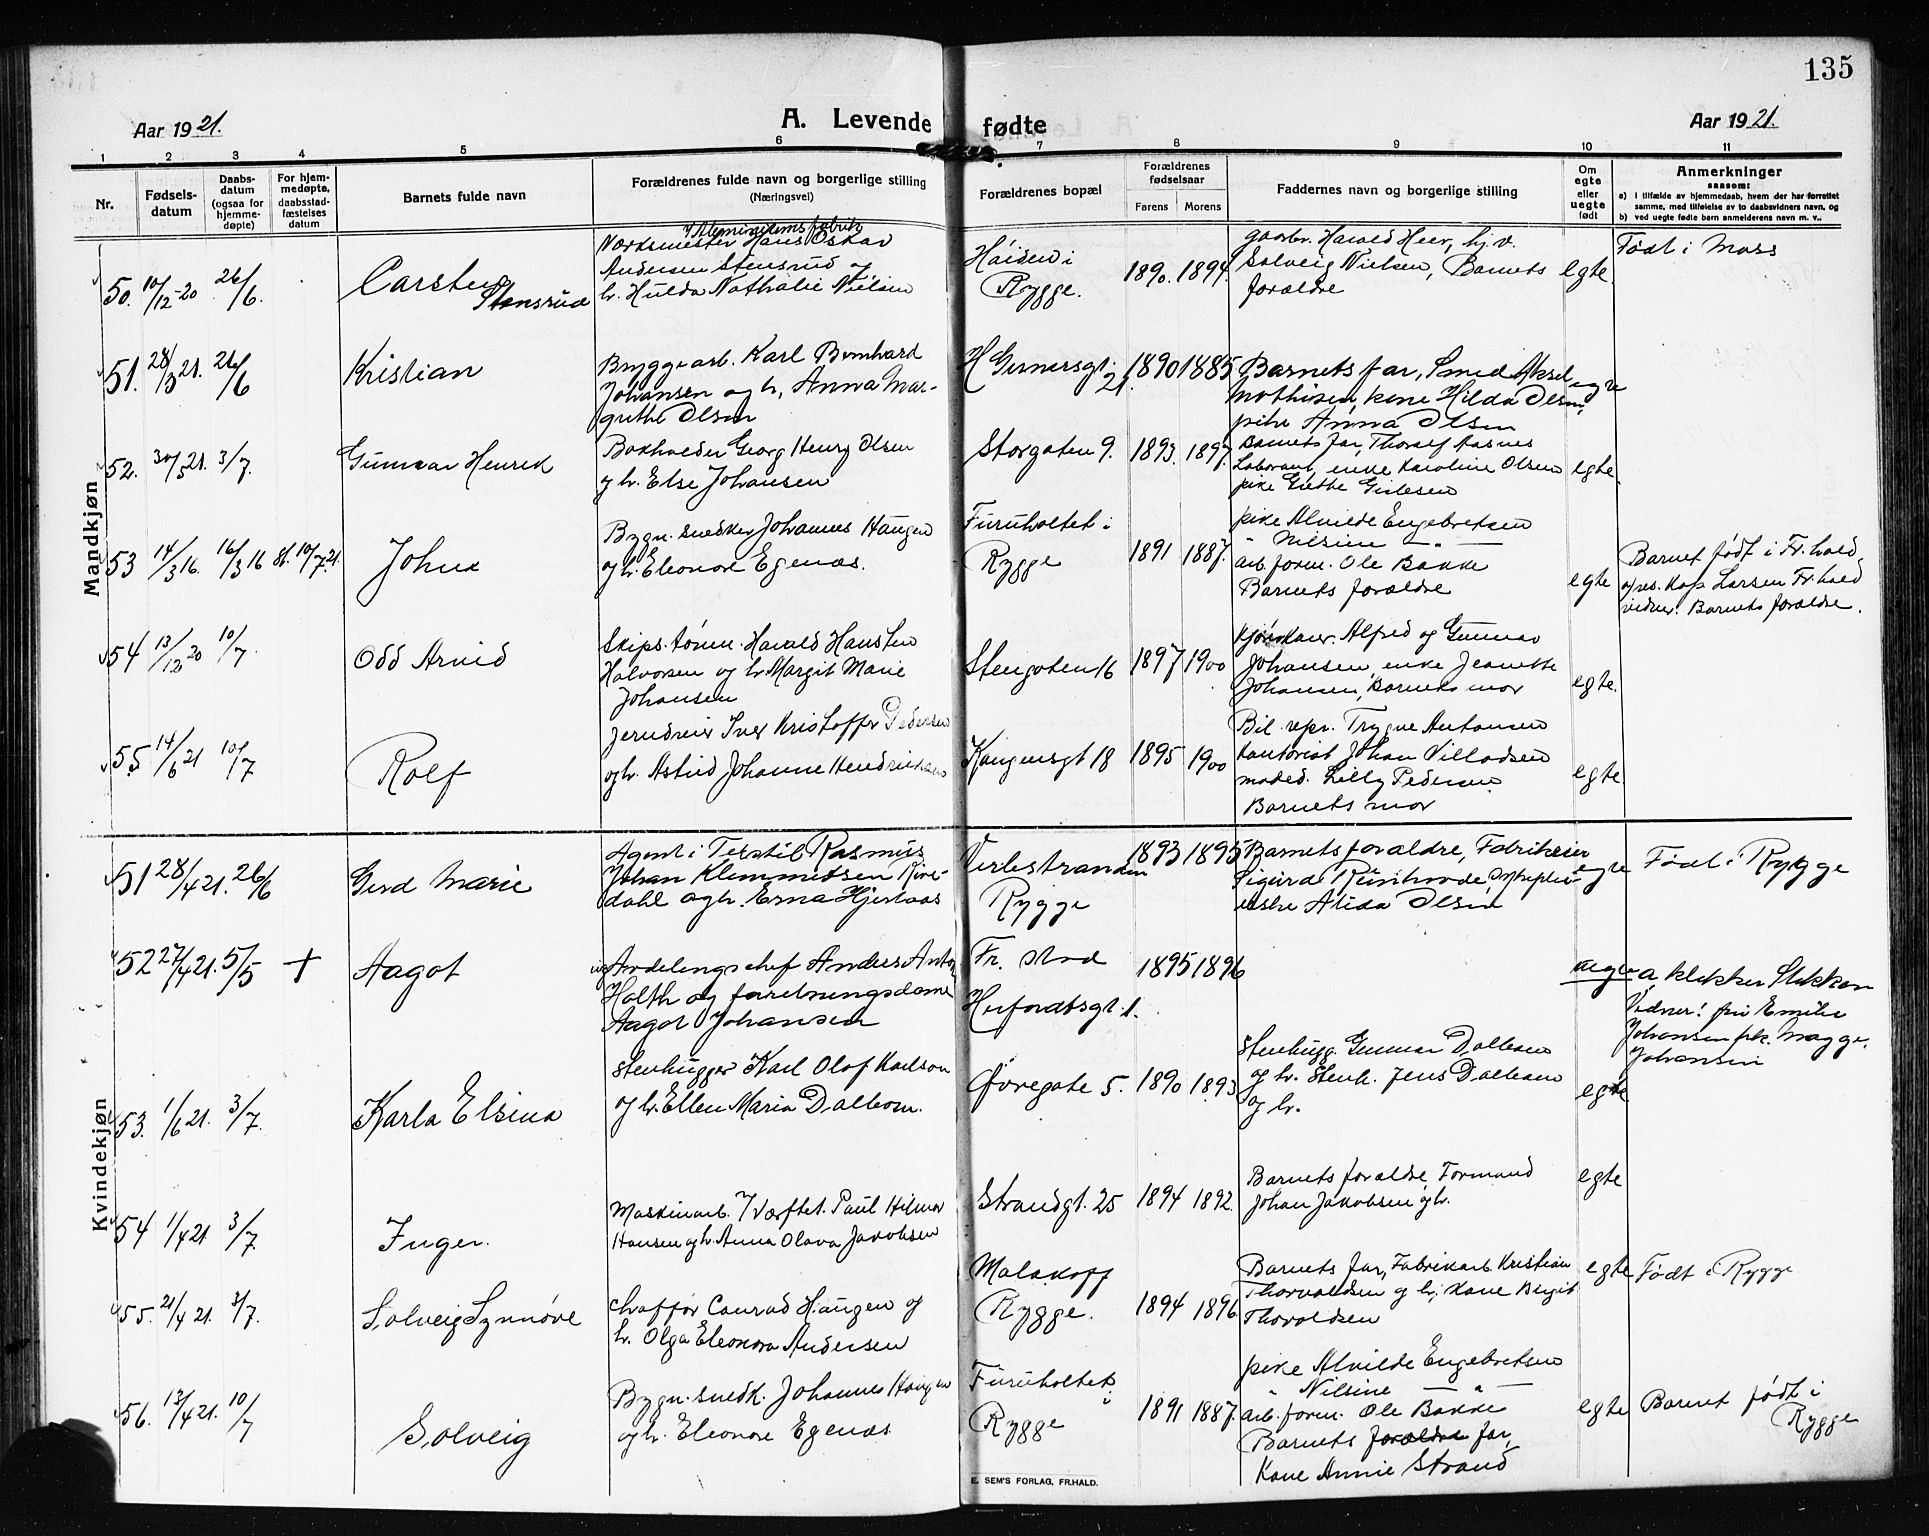 135
Aar 1921.
A. Levende fødte
Aar 1921.
1 2 3 4 5 6 7 8 9 10 11
Nr.
Fødsels-
datum
Daabs-
datum
(ogsaa for
hjemme-
døpte)
For hjem-
medøpte,
daabsstad-
fæstelses
datum
Barnets fulde navn
Forældrenes fulde navn og borgerlige stilling
(Næringsvei)
Forældrenes bopæl
Forældrenes
fødselsaar
Farens Morens
Faddernes navn og borgerlige stilling
Om
egte
eller
uegte
født
Anmerkninger
saasom:
a) i tilfælde av hjemmedaab, hvem der har forrettet
samme, med tilføielse av to daabsvidners navn, og
b) ved uegte fødte barn anmelderens navn m. v.
Mandkjøn
50. 10/12-20 26/6.
Carsten
Stensrud
i Aluminiumsfabrik
Værksmester Hans Oskar
Andersen Stensrud og
h. Hulda Nathalie Nielsen
Höiden i
Rygge.
1890. 1894.
Gaardbr. Harald Heer, hj. v.
Solveig Nielsen, Barnets
forældre
egte
Født i Moss
51. 28/3 21. 26/6
Kristian
Bryggearb. Karl Bernhard
Johansen og h. Anna Mar-
grethe Olsen
H Gernersgt.
21.
1890 1885
Barnets far, Smed Aksel
Mathisen, kone Hilda Olsen,
pike Anna Olsen
egte
52. 30/5 21. 3/7.
Gunnar Henrik
Georg Henry Olsen
og h. Else Johansen
Storgaten 9.
1893. 1897.
Barnets far, Thoralf Aasnes
Laborant, enke Karoline Olsen
pike Grethe Gislesen
egte.
53 14/3 16. 16/3 16 St. 10/7.21.
John
Bygn. snedker Johannes Haugen
og h. Eleonore Egenæs.
Furuholtet i
Rygge
1891 1887.
pike Alvilde Engebretsen
" Nilsine — " —
arb. form. Ole Bakke
Barnets forældre
egte
Barnet født i Fr.hald,
av res. Kap Larsen Fr.hald
vidner: Barnets forældre.
54 13/12 20 10/7.
Odd Arvid
Skips. tømm. Harald Hansten
Halvorsen og h. Margit Marie
Johansen
Stengaten 16
1897 1900
Alfred og Gunnar
Johansen, enke Jeanette
Johansen, Barnets mor
egte.
55 14/6 21 10/7
Rolf
Jerndreier Iver Kristoffer Pedersen
og h. Astrid Johanne Hendriksen
Kongensgt 18
1895 1900
Bil. repr. Trygve Antonsen
kontorist Johan Villadsen
Lilly Pedersen
Barnets mor
egte
Kvindekjøn
51 28/4 21. 26/6
Gerd Marie
Agent i Textil Rasmus
Johan Klemmetsen Rive-
dahl og h. Erna Hjertaas
Verlestranden
Rygge
1893 1895
Barnets forældre, Fabrikeier
Sigurd
Alida Olsen
egte
Født i Rygge
52 27/4 21. 5/5 +
Aagot
Avdelingschef Anders Anton
Holth og forretningsdame
Aagot Johansen
Fr. stad
Herfordtsgt. 1.
1895 1896
uegte
a, klokker Stikken
Vidner: fru Emilie
Johansen, frk. Magge.
Johansen
53. 1/6 21. 3/7.
Karla Elsina
Stenhugger Karl Olof Karlson
og h. Ellen Maria Dalbom.
Øvregate 5.
1890 1893
Stenhugg. Gunnar Dalbom
og h. Stenh. Jens Dalbom
og h.
egte
54 1/4 21. 3/7.
Inger.
Maskinarb. v/ Værftet. Paul Hilmar
Hansen og h. Anna Olava Jakobsen
Strandgt. 25
1894 1892.
Barnets forældre, Formand
Johan Jakobsen og h.
egte
55. 21/4 21. 3/7.
Solveig Synnøve
Chaffør Conrad Haugen og
h. Olga Eleonora Andersen
Malakoff
Rygge.
1894 1896
Barnets far, Fabrikarb. Kristian
Thorvaldsen og h., Kone Birgit
Thoraldsen
egte
Født i Rygge
56. 13/4 21. 10/7
Solveig
Bygn. snedk. Johannes Haugen
og h. Eleonore Egenæs
Furuholtet
i
Rygge
1891 1887.
pike Alvilde Engebretsen
" Nilsine — " —
arb. form. Ole Bakke
Barnets forældre far,
Kone Annie Strand
egte
Barnet født i
Rygge
E. SEM'S FORLAG, FR.HALD.